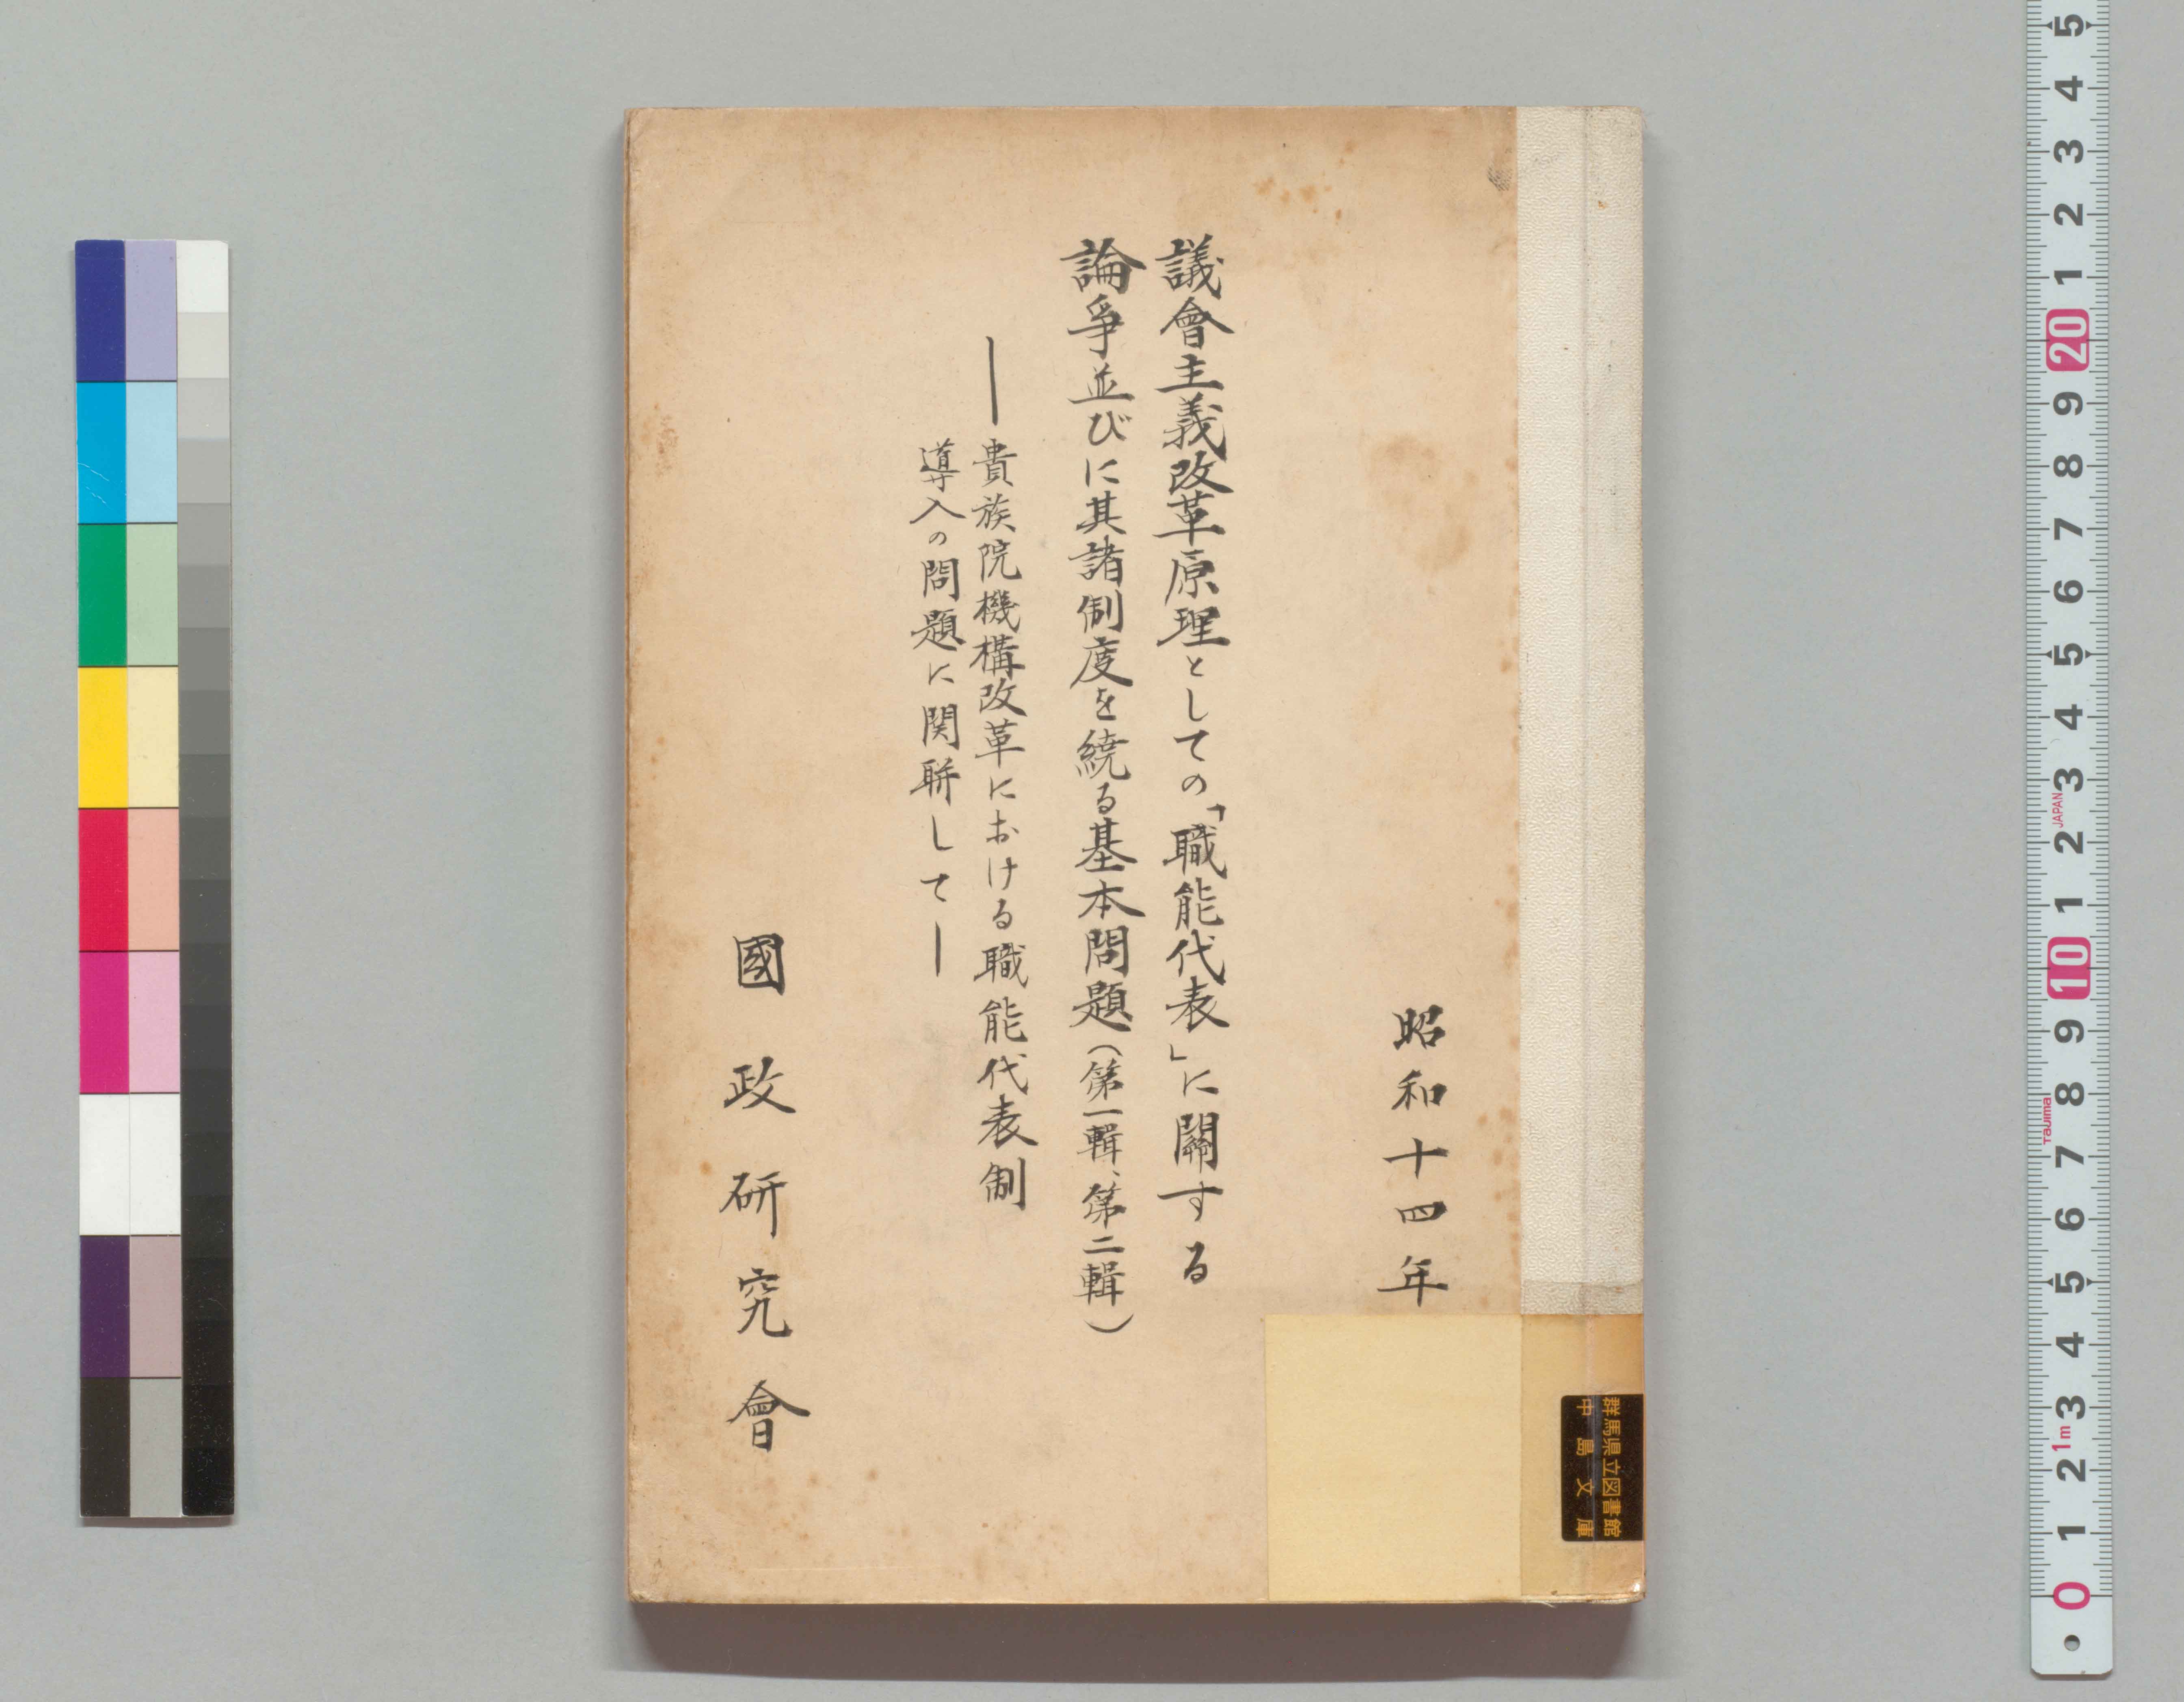 昭和十四年
議會主義改革原理としての「職能代表」に關する
論爭並びに其諸制度を繞る基本問題(第一輯、第二輯)
―貴族院機構改革における職能代表制
導入の問題に関聯して―
國政研究會
群馬県立図書館
中島文庫
5
4
3
2
1
20
9
8
7
6
5
4
3
JAPAN
2
1
10
9
8
Tajima
7
6
5
4
3
1m
2
1
0